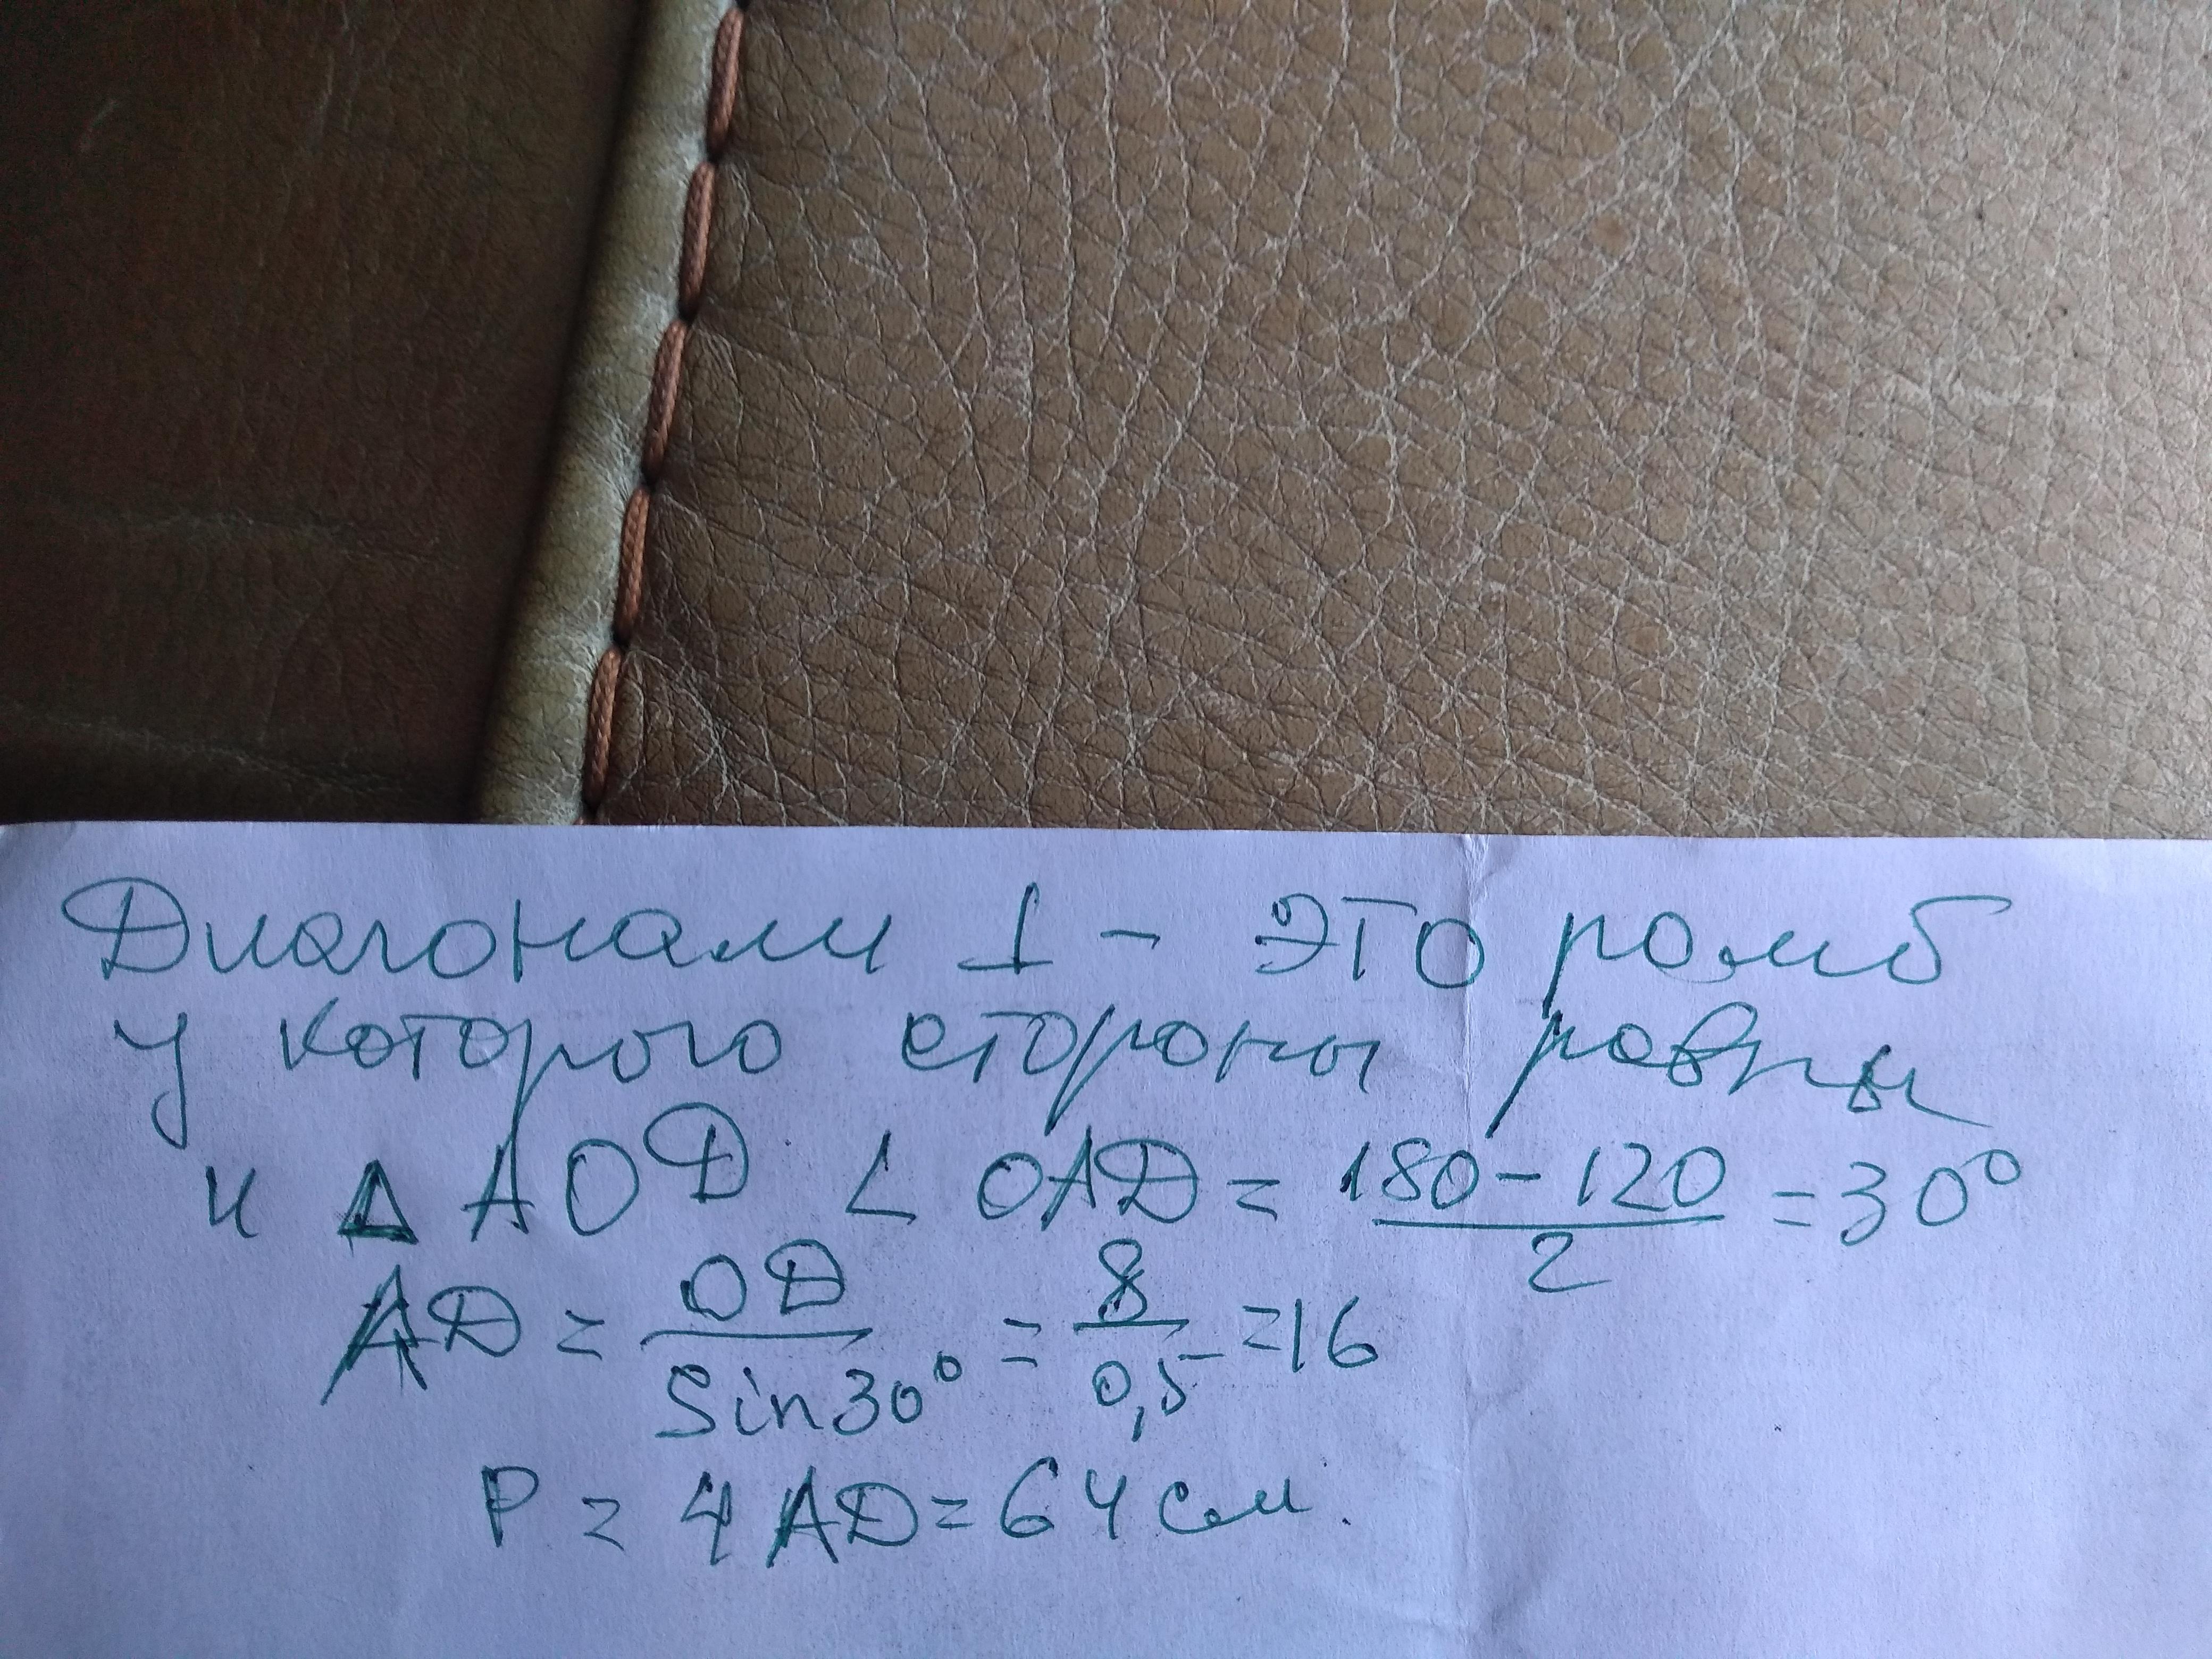 Диагонали ⊥ - это ромб
у которого стороны равны
и Δ AOD ∠ OAD = (180-120)/2 = 30°
AD = OD/Sin30° = 8/0,5 = 16
P = 4AD = 64 см.